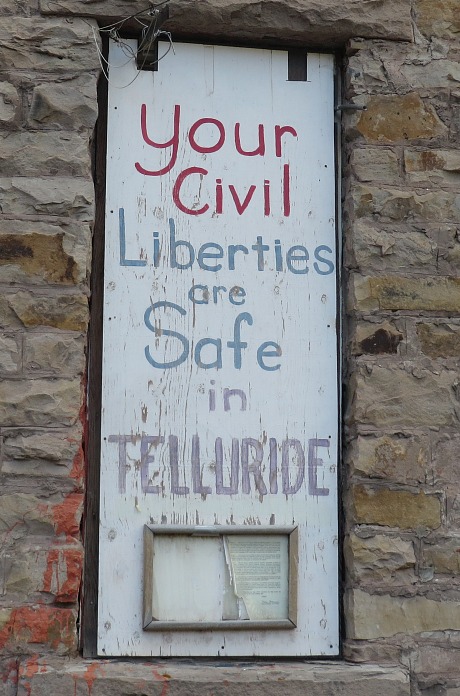 Your
Civil
Liberties
are
Safe
in
TELLURIDE